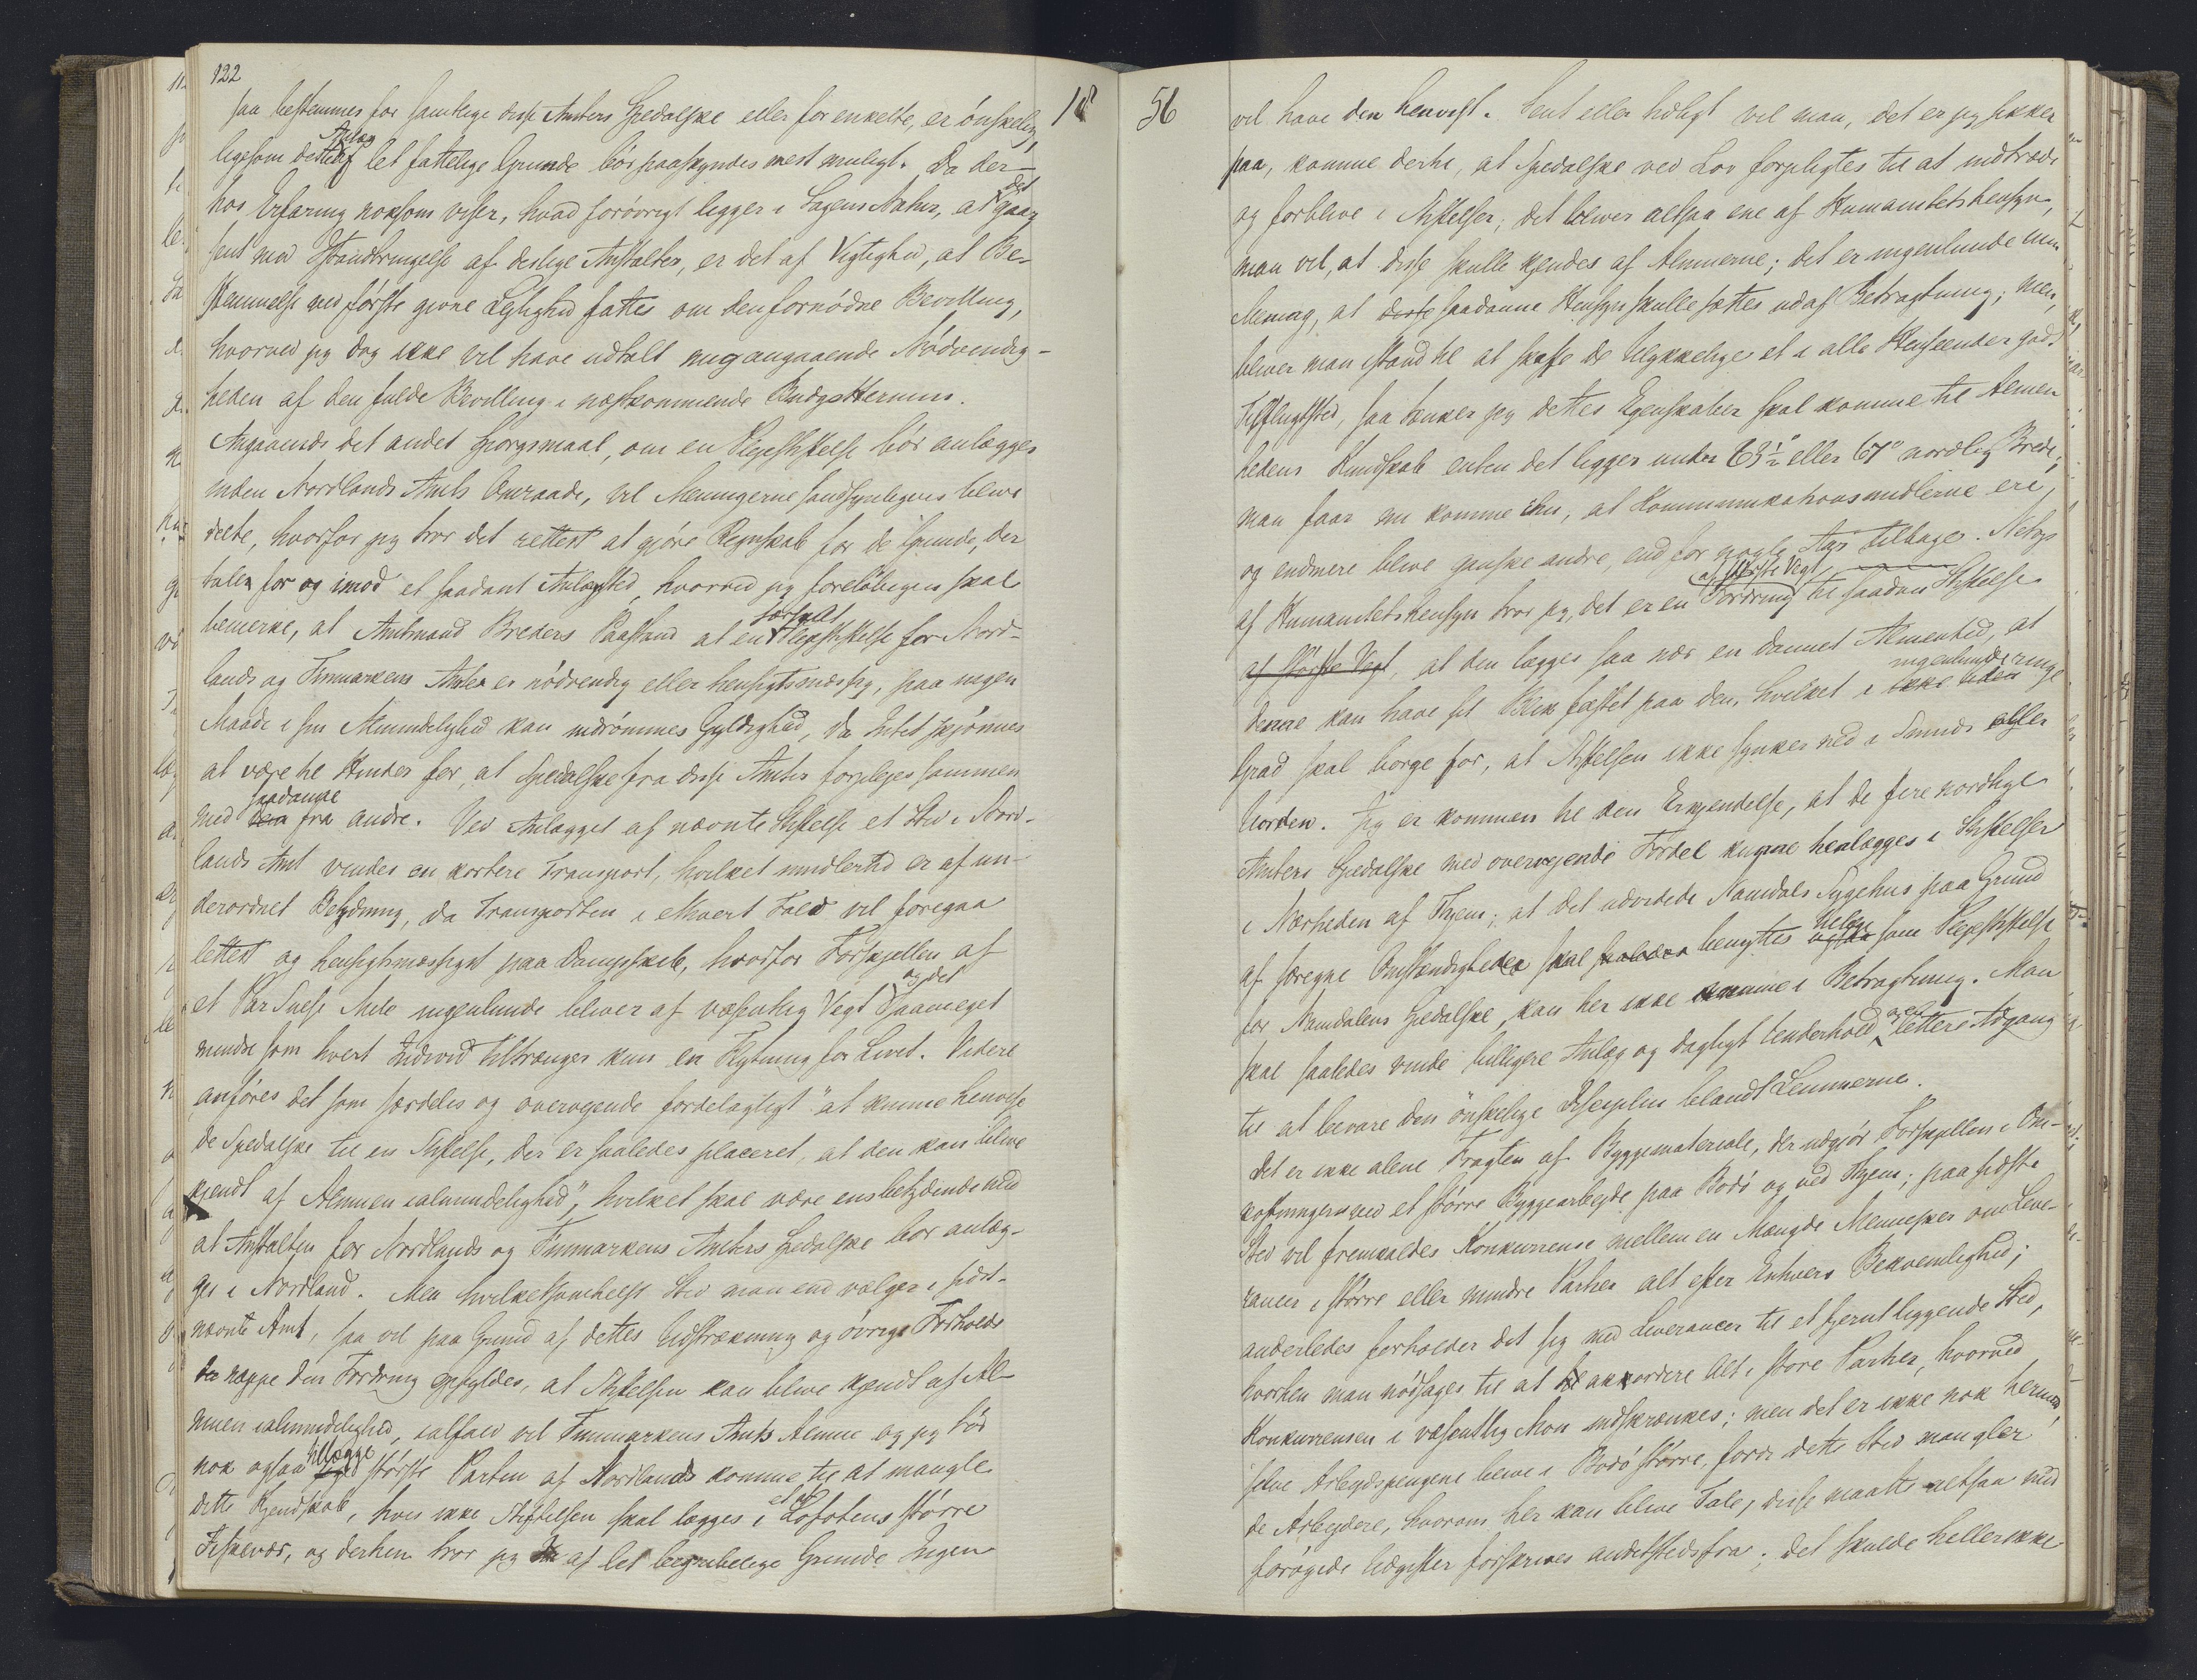 122
saa bestemmes for samtlige disse Amters Spedalske eller for enkelte, er ønskelig,
Anlæg
ligesom dette af let fattelige Grunde bør paaskyndes mest muligt. Da der-
det
hos Erfaring noksom viser, hvad forøvrigt ligger i Sagens Natur, at gaar
sent med Istandbringelse af deslige Anstalter, er det af Vigtighed, at Be-
stemmelse ved første givne Lejlighed fattes om den fornødne Bevilling,
hvorved jeg dog ikke vil have udtalt mig angaaende Nødvendig-
heden af den fulde Bevilling i næstkommende Budgettermin.
Angaaende det andet Spørgsmaal, om en Plejestiftelse bør anlægges
inden Nordlands Amts Omraade, vil Meningerne sandsynligvis blive
delte, hvorfor jeg tror det rettest at gjøre Regnskab for de Grunde, der
taler for og imod et saadant Anlægssted, hvorved jeg foreløbigen skal
særskilt
bemerke, at Amtmand Breders Paastand at en Plejestiftelse for Nord-
lands og Finmarkens Amter er nødvendig eller hensigtsmæssig, paa ingen
Maade i sin Almindelighed kan indrømmes Gyldighed, da Intet skjønnes
at være til Hinder for, at Spedalske fra disse Amter forplejes sammen
saadanne
med dem fra andre. Ved Anlægget af nævnte Stiftelse et Sted i Nord-
lands Amt vindes en kortere Transport, hvilket imidlertid er af un-
derordnet Betydning, da Transporten i ethvert Fald vil foregaa
lettest og hensigtsmæssigst paa Dampskib, hvorfor Forskjellen af
og det
et Par Snese Mile ingenlunde bliver af væsentlig Vegt saameget
mindre som hvert Individ tiltrænger kun en Flytning for Livet. Videre
anføres det som særdeles og overvejende fordelagtigt "at kunne henvise
de Spedalske til en Stiftelse, der er saaledes placeret, at den kan blive
kjendt af Almuen ialmindelighed", hvilket skal være ensbetydende med
at Anstalten for Nordlands og Finmarkens Amters Spedalske bør anlæg-
ges i Nordland. Men hvilketsomhelst Sted man end vælger i sidst-
nævnte Amt, saa vil paa Grund af dettes Udstrækning og øvrige Forholde
der neppe den Fordring opfyldes, at Stiftelsen kan blive kjendt af Al-
muen ialmindelighed, ialfald vil Finmarkens Amts Almue og jeg tør
tillægge
nok ogsaa største Parten af Nordlands komme til at mangle
et af
dette Kjendskab, hvis ikke Stiftelsen skal lægges i Lofotens større
Fiskevær, og derhen tror jeg af let begribelige Grunde Ingen
18
56
vil have den henvist. Sent eller tidligt vil man, det er jeg sikker
paa, komme dertil, at Spedalske ved Lov forpligtes til at indtræde
og forblive i Stiftelser; det bliver altsaa ene af Humanitetshensyn,
man vil, at disse skulle kjendes af Almuerne; det er ingenlunde min
Mening, at disse saadanne Hensyn skulle sættes udaf Betragtning; men,
bliver man istand til at skaffe de Ulykkelige et i alle Henseender godt
Tilflugtssted, saa tænker jeg dettes Egenskaber skal komme til Almen
hedens Kundskab enten det ligger under 63½° eller 67° nordlig Brede;
man faar nu komme ihu, at Kommunikationsmidlerne ere,
og endmere blive ganske andre, end for nogle Aar tilbage. Netop
af største Vegt
af Humanitetshensyn tror jeg, det er en Fordring til saadan Stiftelse
af største Vegt, at den lægges saa nær en dannet Almenhed, at
ingenlunde ringe
denne kan have sit Blik fæstet paa den, hvilket i ikke liden
Grad skal borge for, at Stiftelsen ikke synker ned i Smuds eller
Uorden. Jeg er kommen til den Erkjendelse, at de fire nordlige
Amters Spedalske med overvejende Fordel kunne henlægges i Stiftelser
i Nærheden af Thjem; at det udvidede Namdals Sygehus paa Grund
tillige
af særegne Omstændigheder skal benyttes ogsaa som Plejestiftelse
for Namdalens Spedalske, kan her ikke komme i Betragtning. Man
og en
skal saaledes vinde billigere Anlæg og dagligt Underhold lettere Adgang
til at bevare den ønskelige Disciplin blandt Lemmerne.
Det er ikke alene Fragten af Byggematerialer, der udgjør Forskjellen i Om-
kostninger ved et større Byggearbejde paa Bodø og ved Thjem; paa sidste
Sted vil fremkaldes Konkurrense mellem en Mængde Mennesker om Leve-
rancer i større eller mindre Partier alt efter Enhvers Bekvemlighed;
anderledes forholder det sig med Leverancer til et fjernt liggende Sted,
hvorhen man nødsages til at akkordere Alt i store Partier, hvorved
Konkurrensen i væsentlig Mon indskrænkes; men det er ikke nok hermed,
selve Arbejdspengene blive i Bodø større, fordi dette Sted mangler
de Arbejdere, hvorom her kan blive Tale, disse maatte altsaa med
forøgede Udgifter forskrives andetstedsfra; det skulde heller ikke